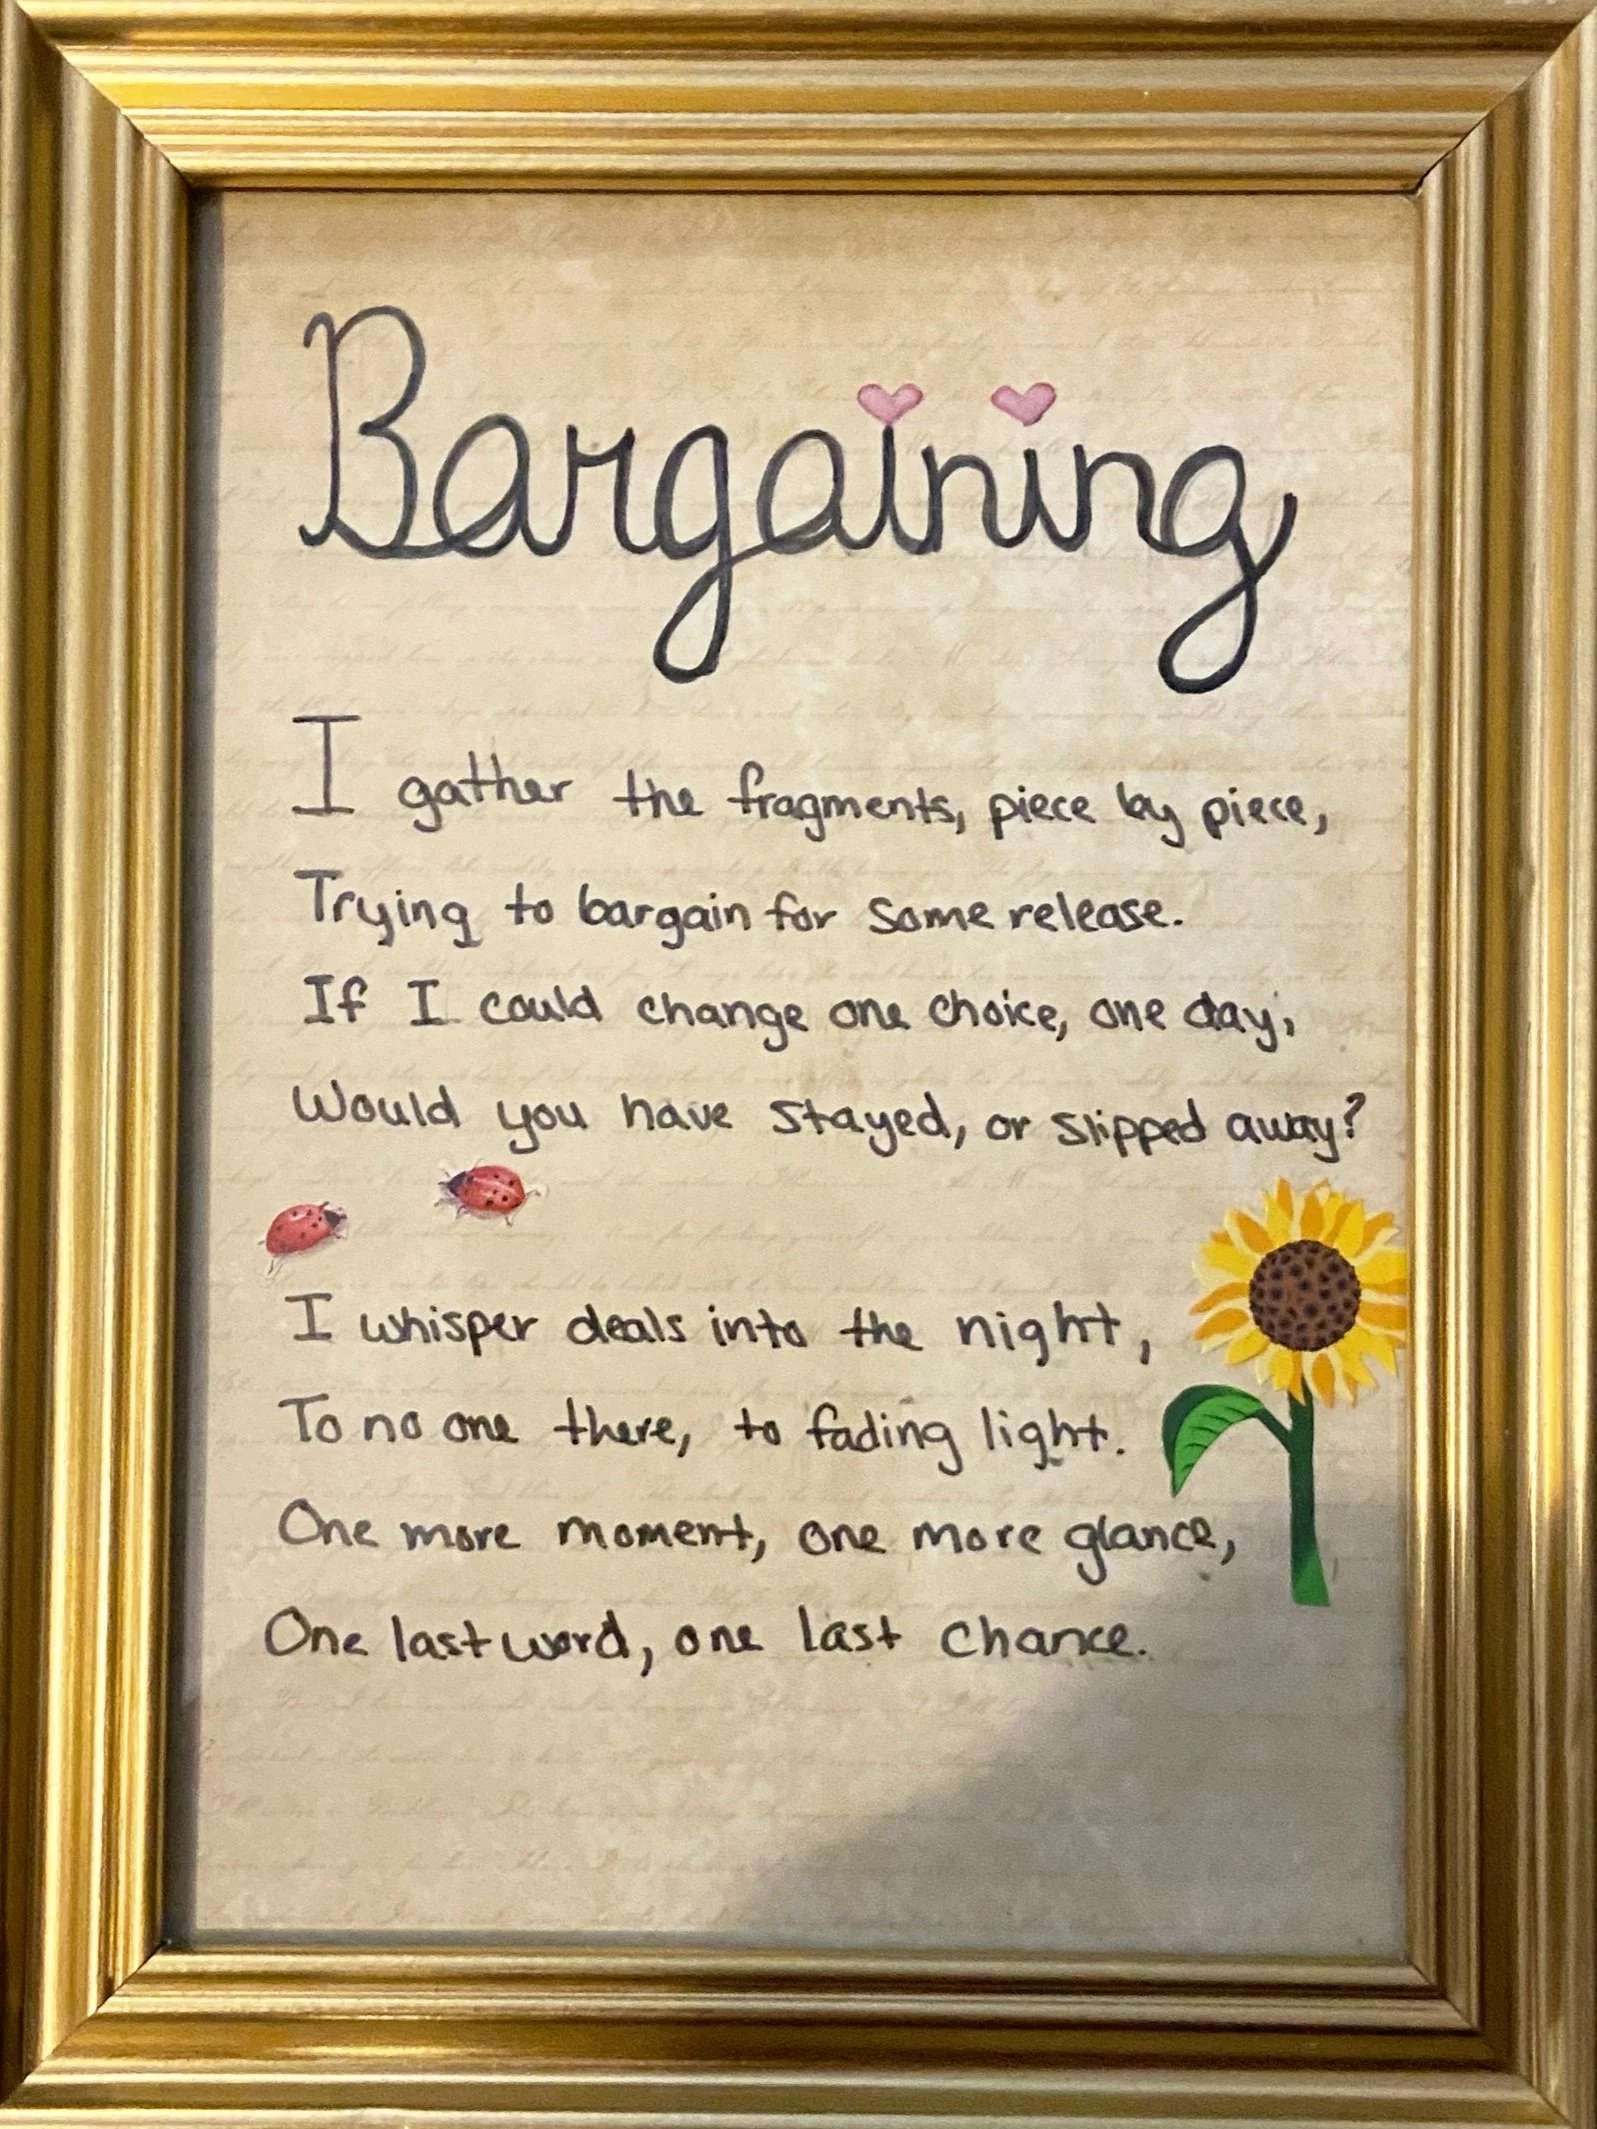 Bargaining
I gather the fragments, piece by piece,
Trying to bargain for some release.
If I could change one choice, one day,
Would you have stayed, or slipped away?
I whisper deals into the night,
To no one there, to fading light.
One more moment, one more glance,
One last word, one last chance.